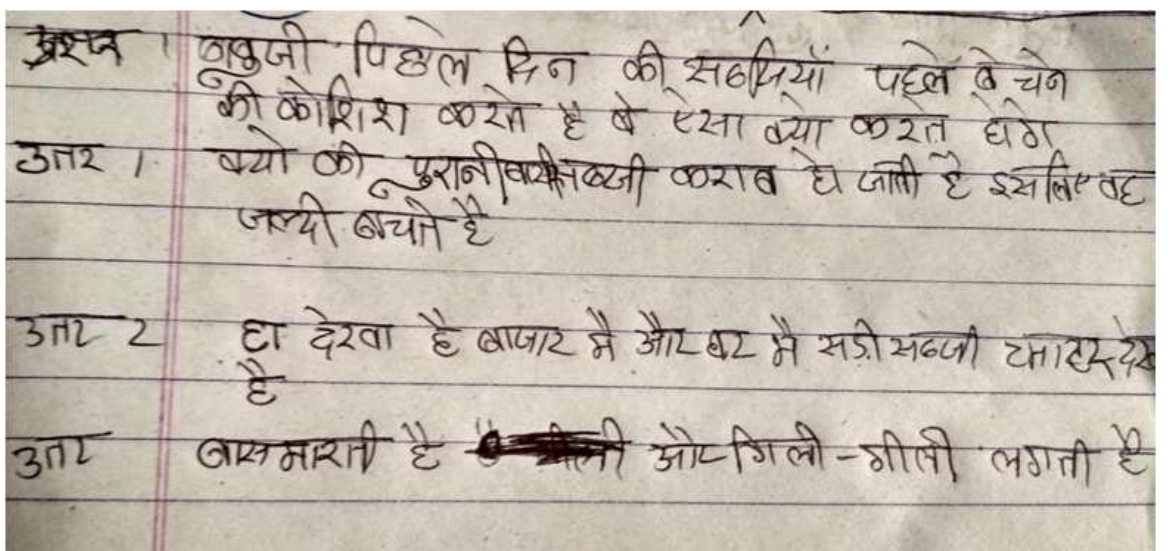 प्रश्न 1 बाबुजी पिछले दिन की सब्जियाँ पहले बेचने
की कोशिश करते है वे ऐसा क्यो करते होगे
उत्तर 1 क्यो की पुरानी सब्जी कराब हो जाती है इसलिए वह
जल्दी बेचते है
उत्तर 2 हा देखा है बाजार मै और घर मै सडी सब्जी टमाटर देखे
है
उत्तर बास मारती है और गिली - गीली लगती है